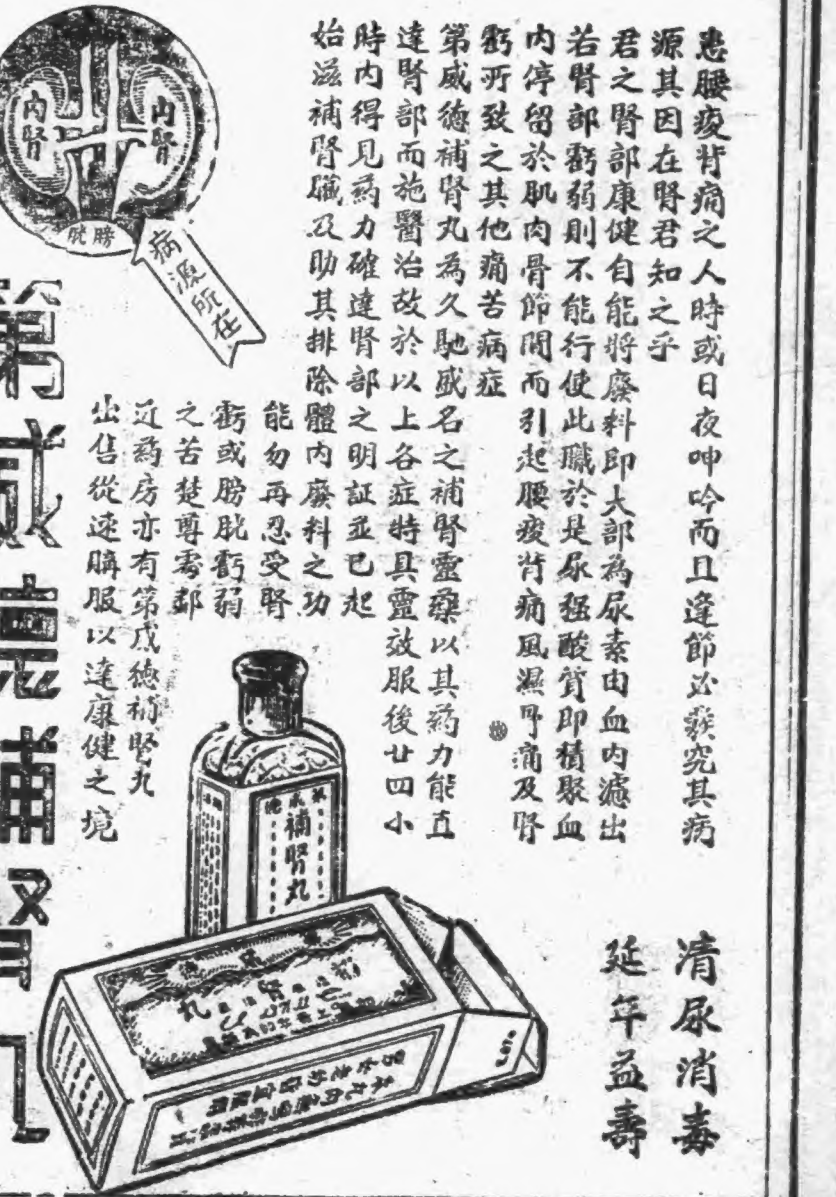 患腰痠背痛之人時或日夜呻吟而且逢節必發究其病
源其因在腎君知之乎
君之腎部康健自能將廢料即大部為尿素由血內濾出
若腎部虧弱則不能行使此職於是尿强酸質即積聚血
內停留於肌肉骨節間而引起腰痠背痛風濕骨痛及腎
虧所致之其他痛苦病症
第威德補腎丸為久馳威名之補腎靈藥以其葯力能直
達腎部而施醫治故於以上各症特具靈效服後廿四小
時內得見葯力確達腎部之明証並已起
始滋補腎臟及助其排除體內廢料之功
能勿再忍受腎
虧或膀胱虧弱
之苦楚尊寓鄰
近葯房亦有第威德補腎丸
出售從速購服以達康健之境
清尿消毒
延年益壽
內腎
內腎
膀胱
病源所在
第威德補腎丸
第威德
補腎丸